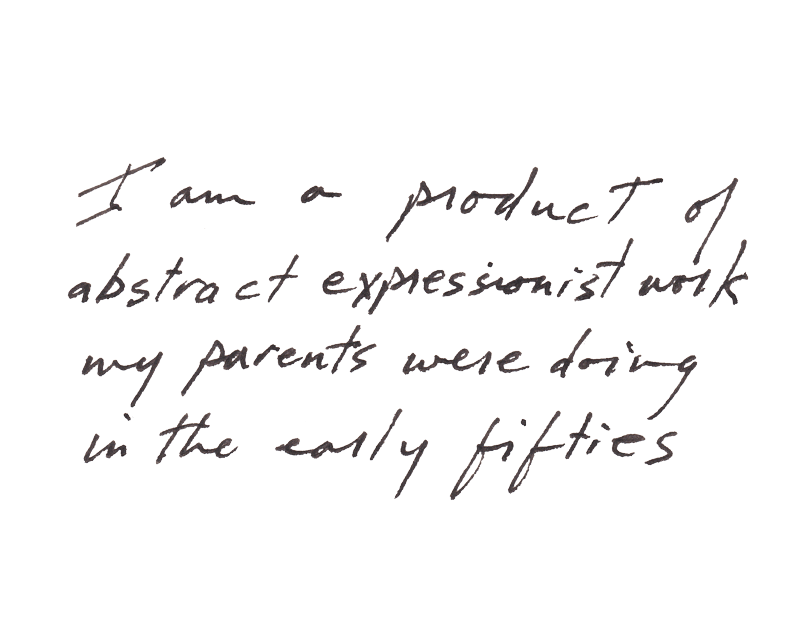 I am a product of
abstract expressionist work
my parents were doing
in the early fifties